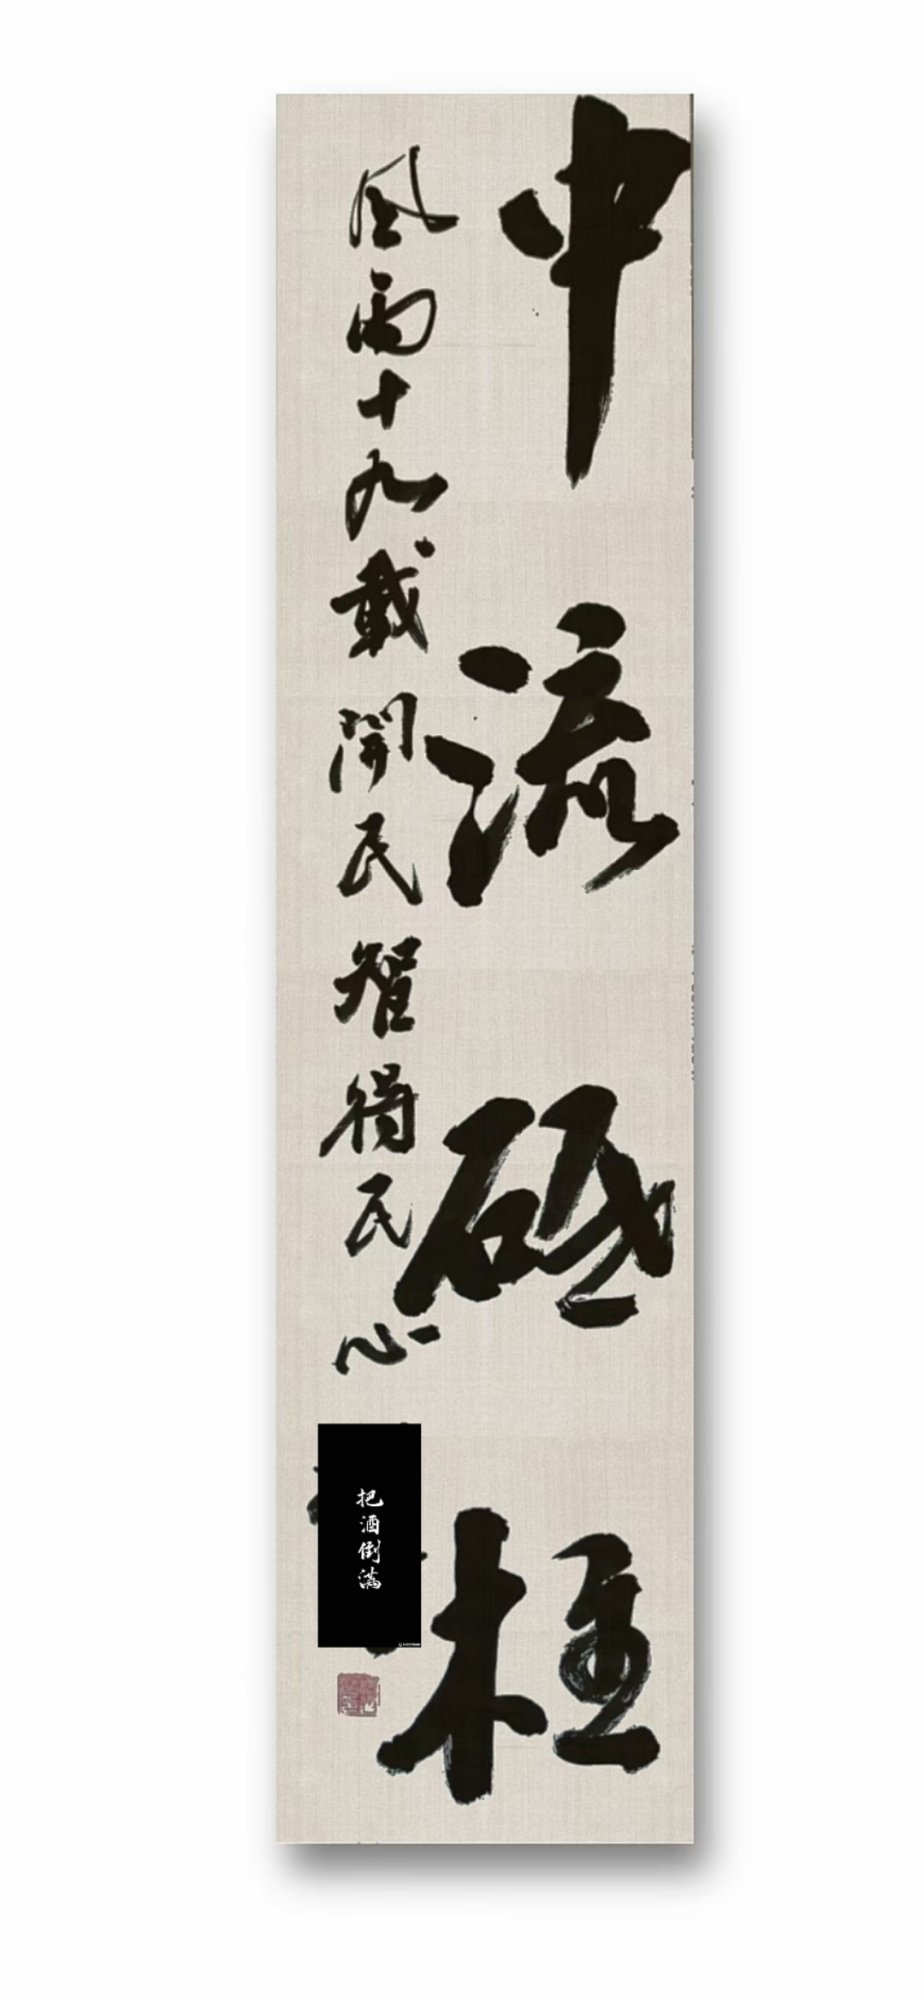 中流砥柱
風雨十九載開民智得民心
把酒倒滿